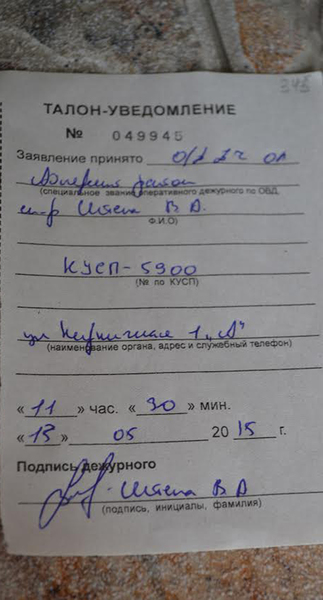 345
ТАЛОН-УВЕДОМЛЕНИЕ
№ 049945
Заявление принято О/Д ДЧ ОП
район
(специальное звание оперативного дежурного по ОВД,
Штепа В. А.
Ф.И.О)
КУСП-5900
(№ по КУСП)
ул 1 „А"
(наименование органа, адрес и служебный телефон)
« 11 » час. « 30 » мин.
« 13 » 05 2015 г.
Подпись дежурного
Штепа В А
(подпись, инициалы, фамилия)